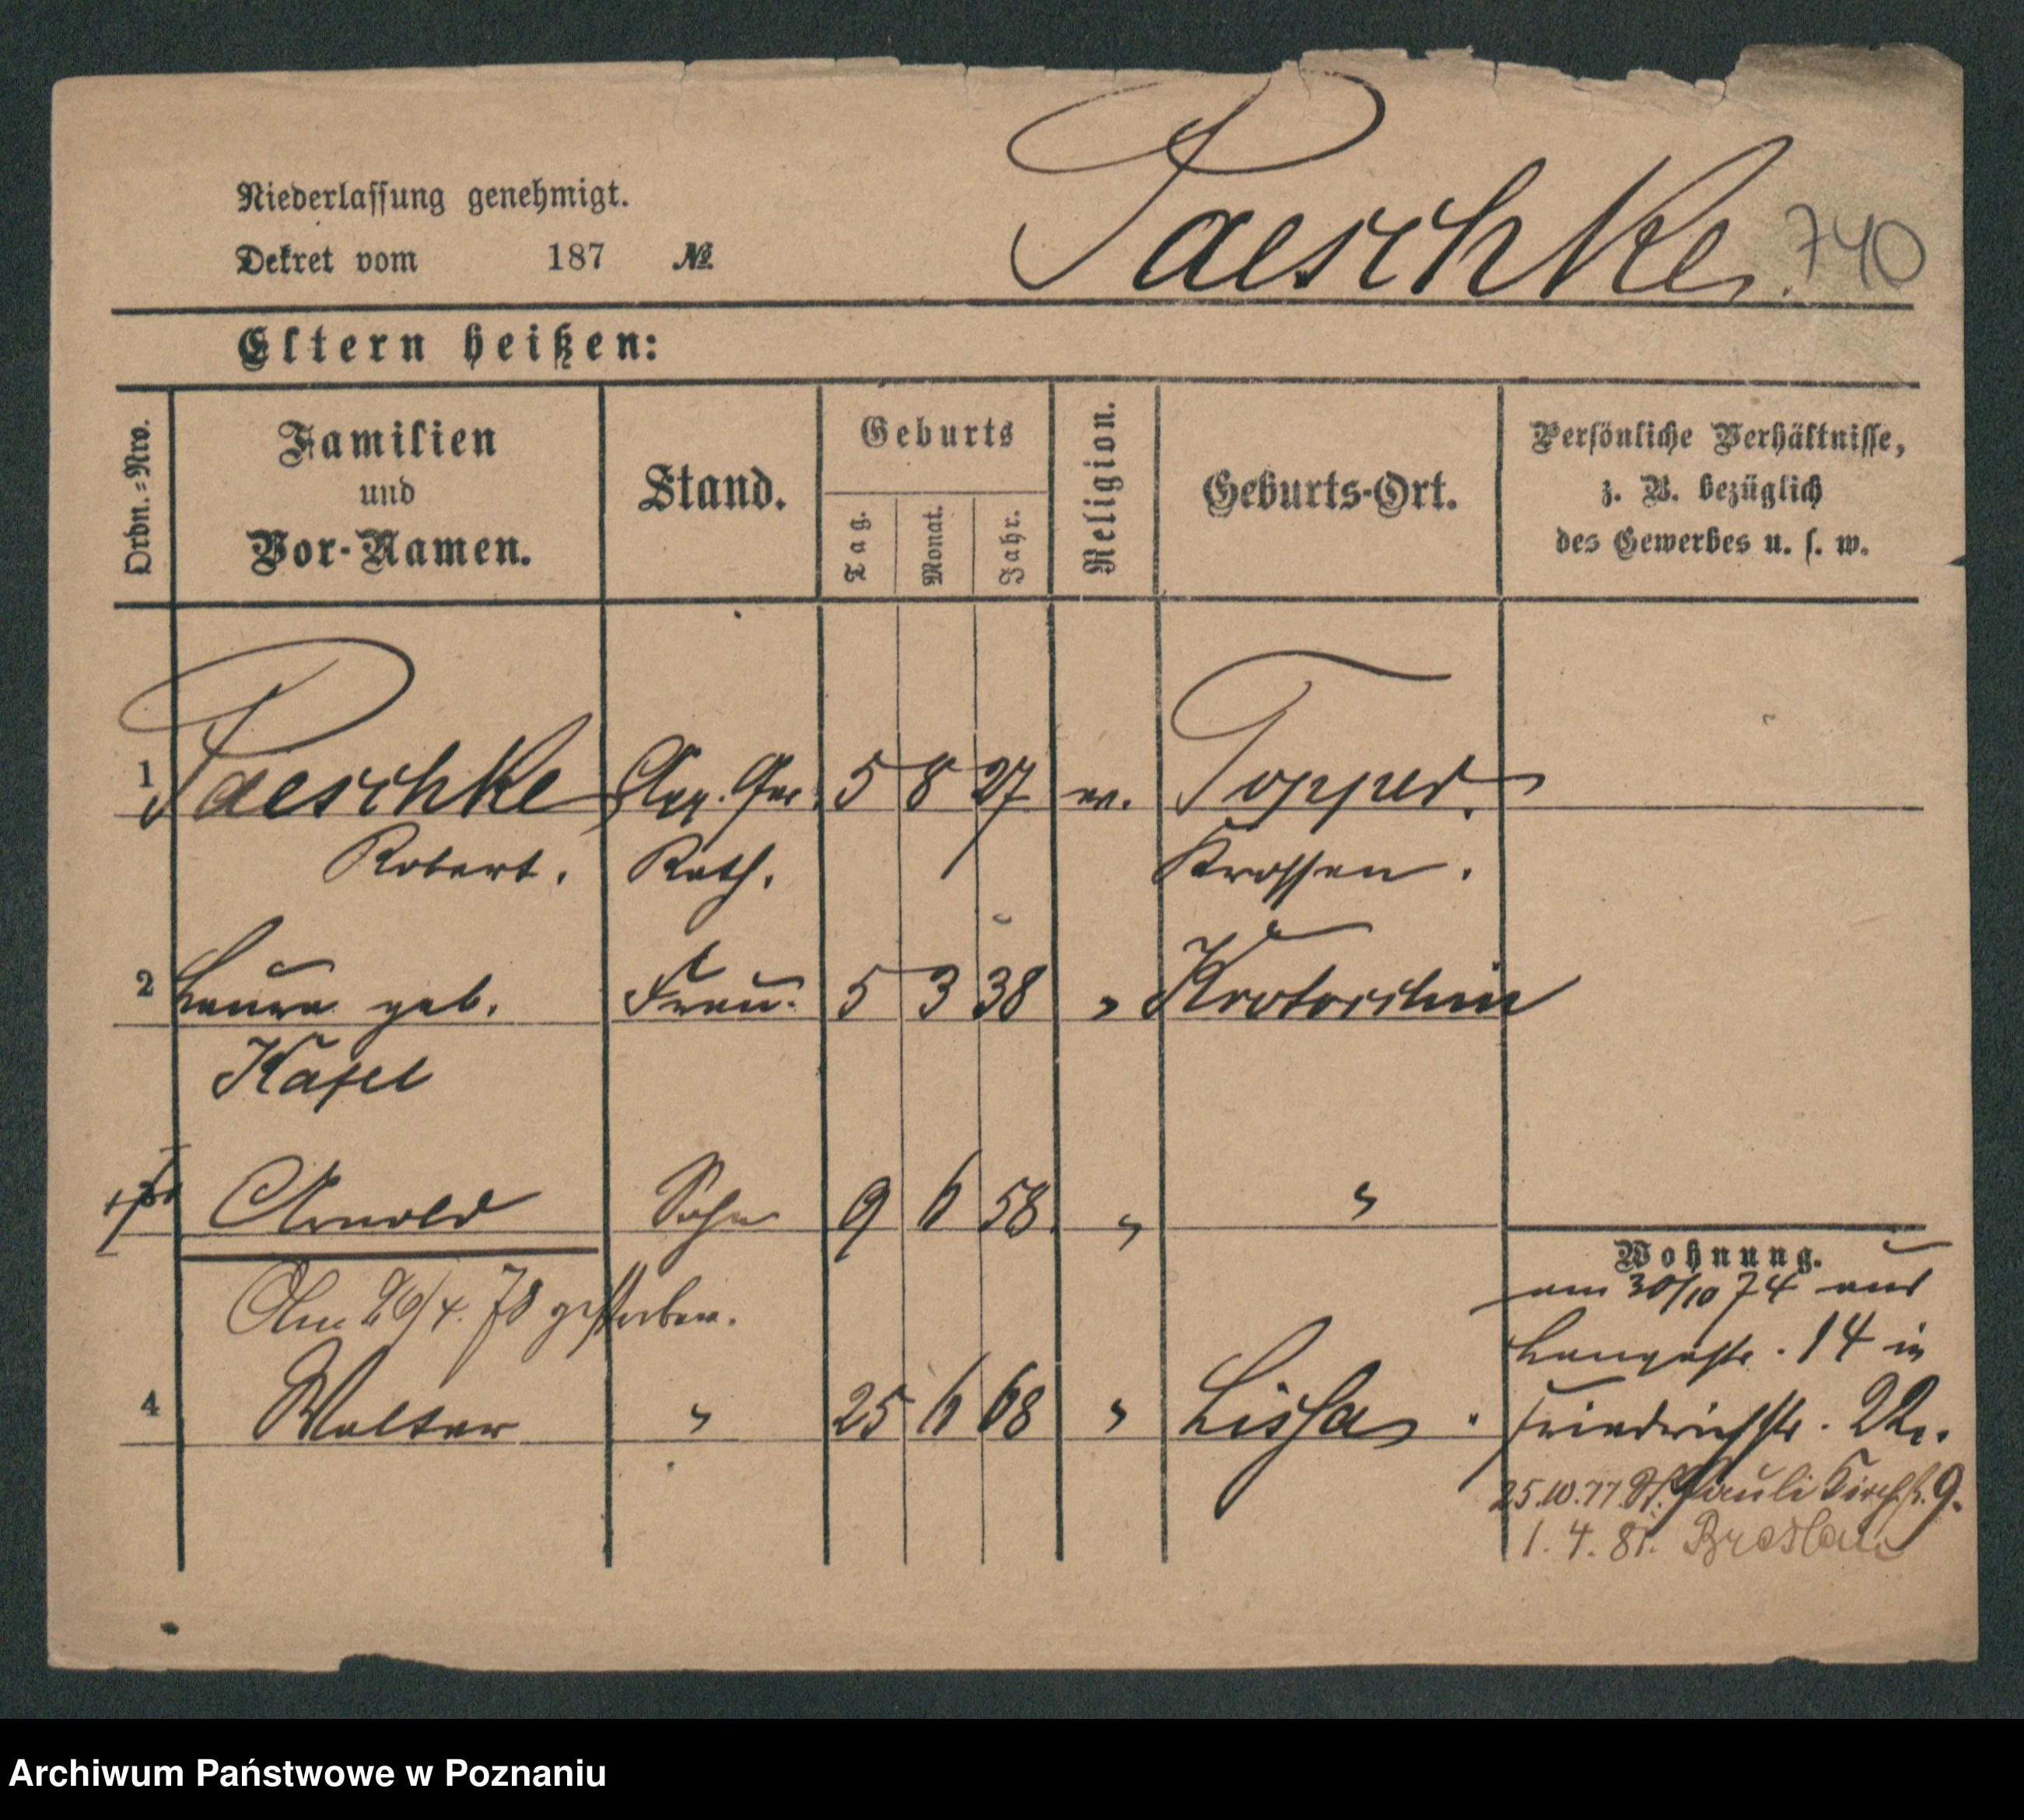 Niederlassung genehmigt.
Paeschke. 740
Dekret vom 187 №
Eltern heißen:
Ordn.=Nro.
Familien
und
Vor-Namen.
Stand.
Geburts
Tag. Monat. Jahr.
Religion.
Geburts-Ort.
Persönliche Verhältnisse,
z. B. bezüglich
des Gewerbes u. s. w.
1 Paeschke App. Ger. 5 8 27 ev. Topper.
Robert. Rath. Krossen.
2 Laura geb. Frau. 5 3 38 " Krotoschin
Käsel
Arnold Sohn 9 6 58. " "
Wohnung.
am 30/10 74 aus
Am 26/4. 78 gestorben.
Langestr. 14 in
4 Walter " 25 6 68 " Lissa. Friedrichstr. 22.
25.10.77. St. Pauli Kirchstr. 9.
1. 4. 81. Breslau
Archiwum Państwowe w Poznaniu